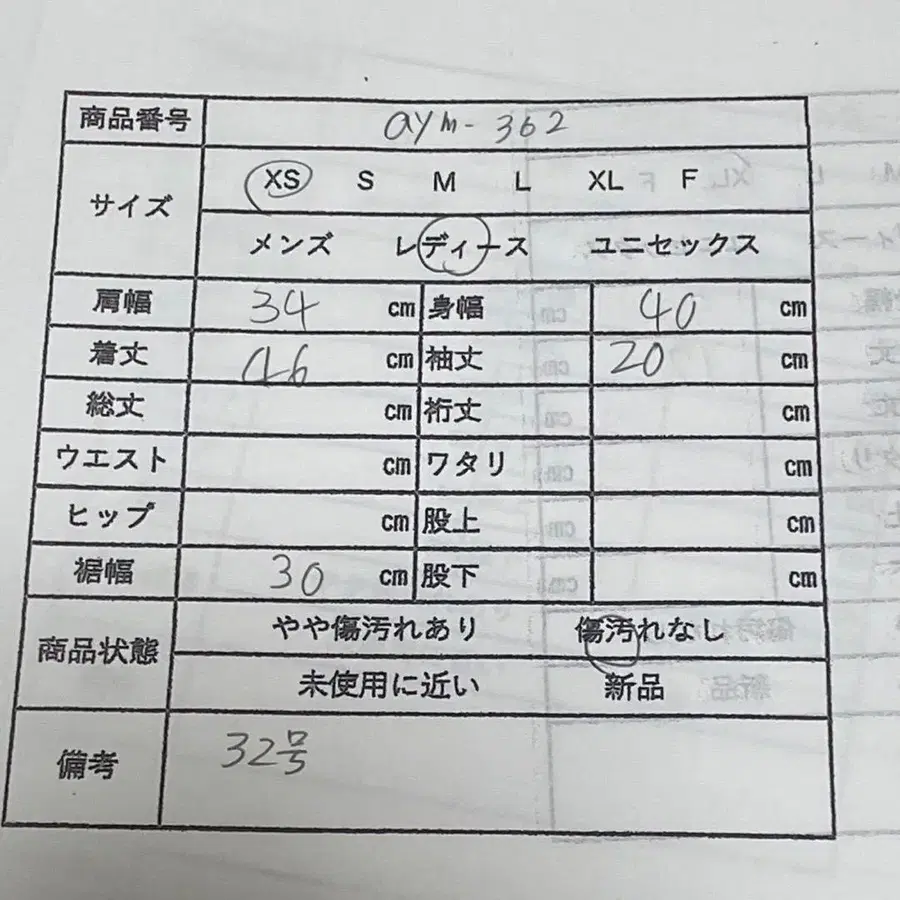 商品番号 aym-362
サイズ XS S M L XL F
メンズ レディース ユニセックス
肩幅 34 cm 身幅 40 cm
着丈 46 cm 袖丈 20 cm
総丈 cm 裄丈 cm
ウエスト cm ワタリ cm
ヒップ cm 股上 cm
裾幅 30 cm 股下 cm
商品状態 やや傷汚れあり 傷汚れなし
未使用に近い 新品
備考 32号